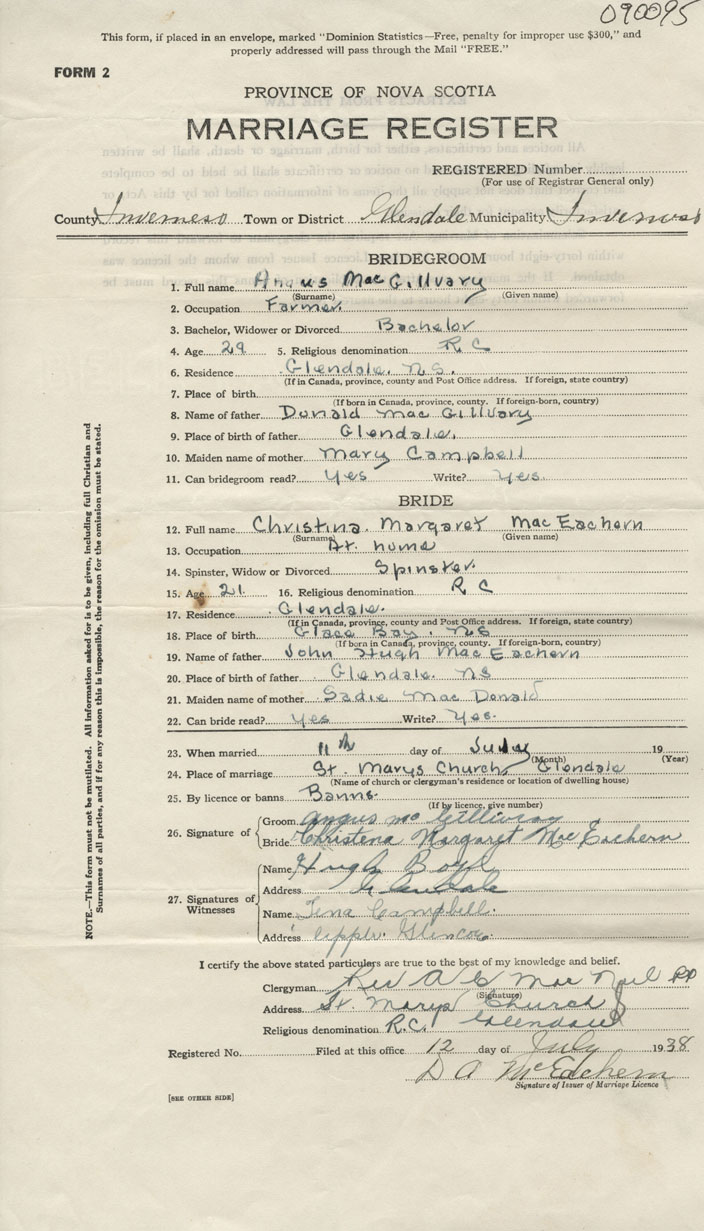 090095
This form, if placed in an envelope, marked "Dominion Statistics—Free, penalty for improper use $300," and
properly addressed will pass through the Mail "FREE."
FORM 2
PROVINCE OF NOVA SCOTIA
MARRIAGE REGISTER
REGISTERED Number
(For use of Registrar General only)
County Inverness Town or District Glendale Municipality Inverness
BRIDEGROOM
1. Full name Angus MacGillvary
(Surname) (Given name)
2. Occupation Farmer.
3. Bachelor, Widower or Divorced Bachelor
4. Age 29 5. Religious denomination R C
6. Residence Glendale. NS.
(If in Canada, province, county and Post Office address. If foreign, state country)
7. Place of birth
(If born in Canada, province, county. If foreign-born, country)
8. Name of father Donald MacGillvary
9. Place of birth of father Glendale.
10. Maiden name of mother Mary Campbell
11. Can bridegroom read? Yes Write? Yes.
BRIDE
12. Full name Christina. Margaret MacEachern
(Surname) (Given name)
13. Occupation At home
14. Spinster, Widow or Divorced Spinster.
15. Age 21. 16. Religious denomination R C
17. Residence Glendale.
(If in Canada, province, county and Post Office address. If foreign, state country)
18. Place of birth Glace Bay. NS
(If born in Canada, province, county. If foreign-born, country)
19. Name of father John Hugh MacEachern
20. Place of birth of father Glendale. NS
21. Maiden name of mother Sadie MacDonald
22. Can bride read? Yes Write? Yes.
23. When married 11th day of July 19
(Month) (Year)
24. Place of marriage St. Marys Church, Glendale
(Name of church or clergyman's residence or location of dwelling house)
25. By licence or banns Banns.
(If by licence, give number)
26. Signature of Groom Angus McGillivray
Bride Christena Margaret MacEachern
27. Signatures of Witnesses
Name Hugh Boyd
Address Glendale
Name Tena Campbell.
Address Upper Glencoe.
I certify the above stated particulars are true to the best of my knowledge and belief.
Clergyman Rev A MacNeil PP
(Signature)
Address St. Marys Church
Religious denomination R.C. Glendale
Registered No. Filed at this office 12 day of July 1938
D A McEachern
Signature of Issuer of Marriage Licence
[SEE OTHER SIDE]
NOTE.—This form must not be mutilated. All information asked for is to be given, including full Christian and
Surnames of all parties, and if for any reason this is impossible, the reason for the omission must be stated.